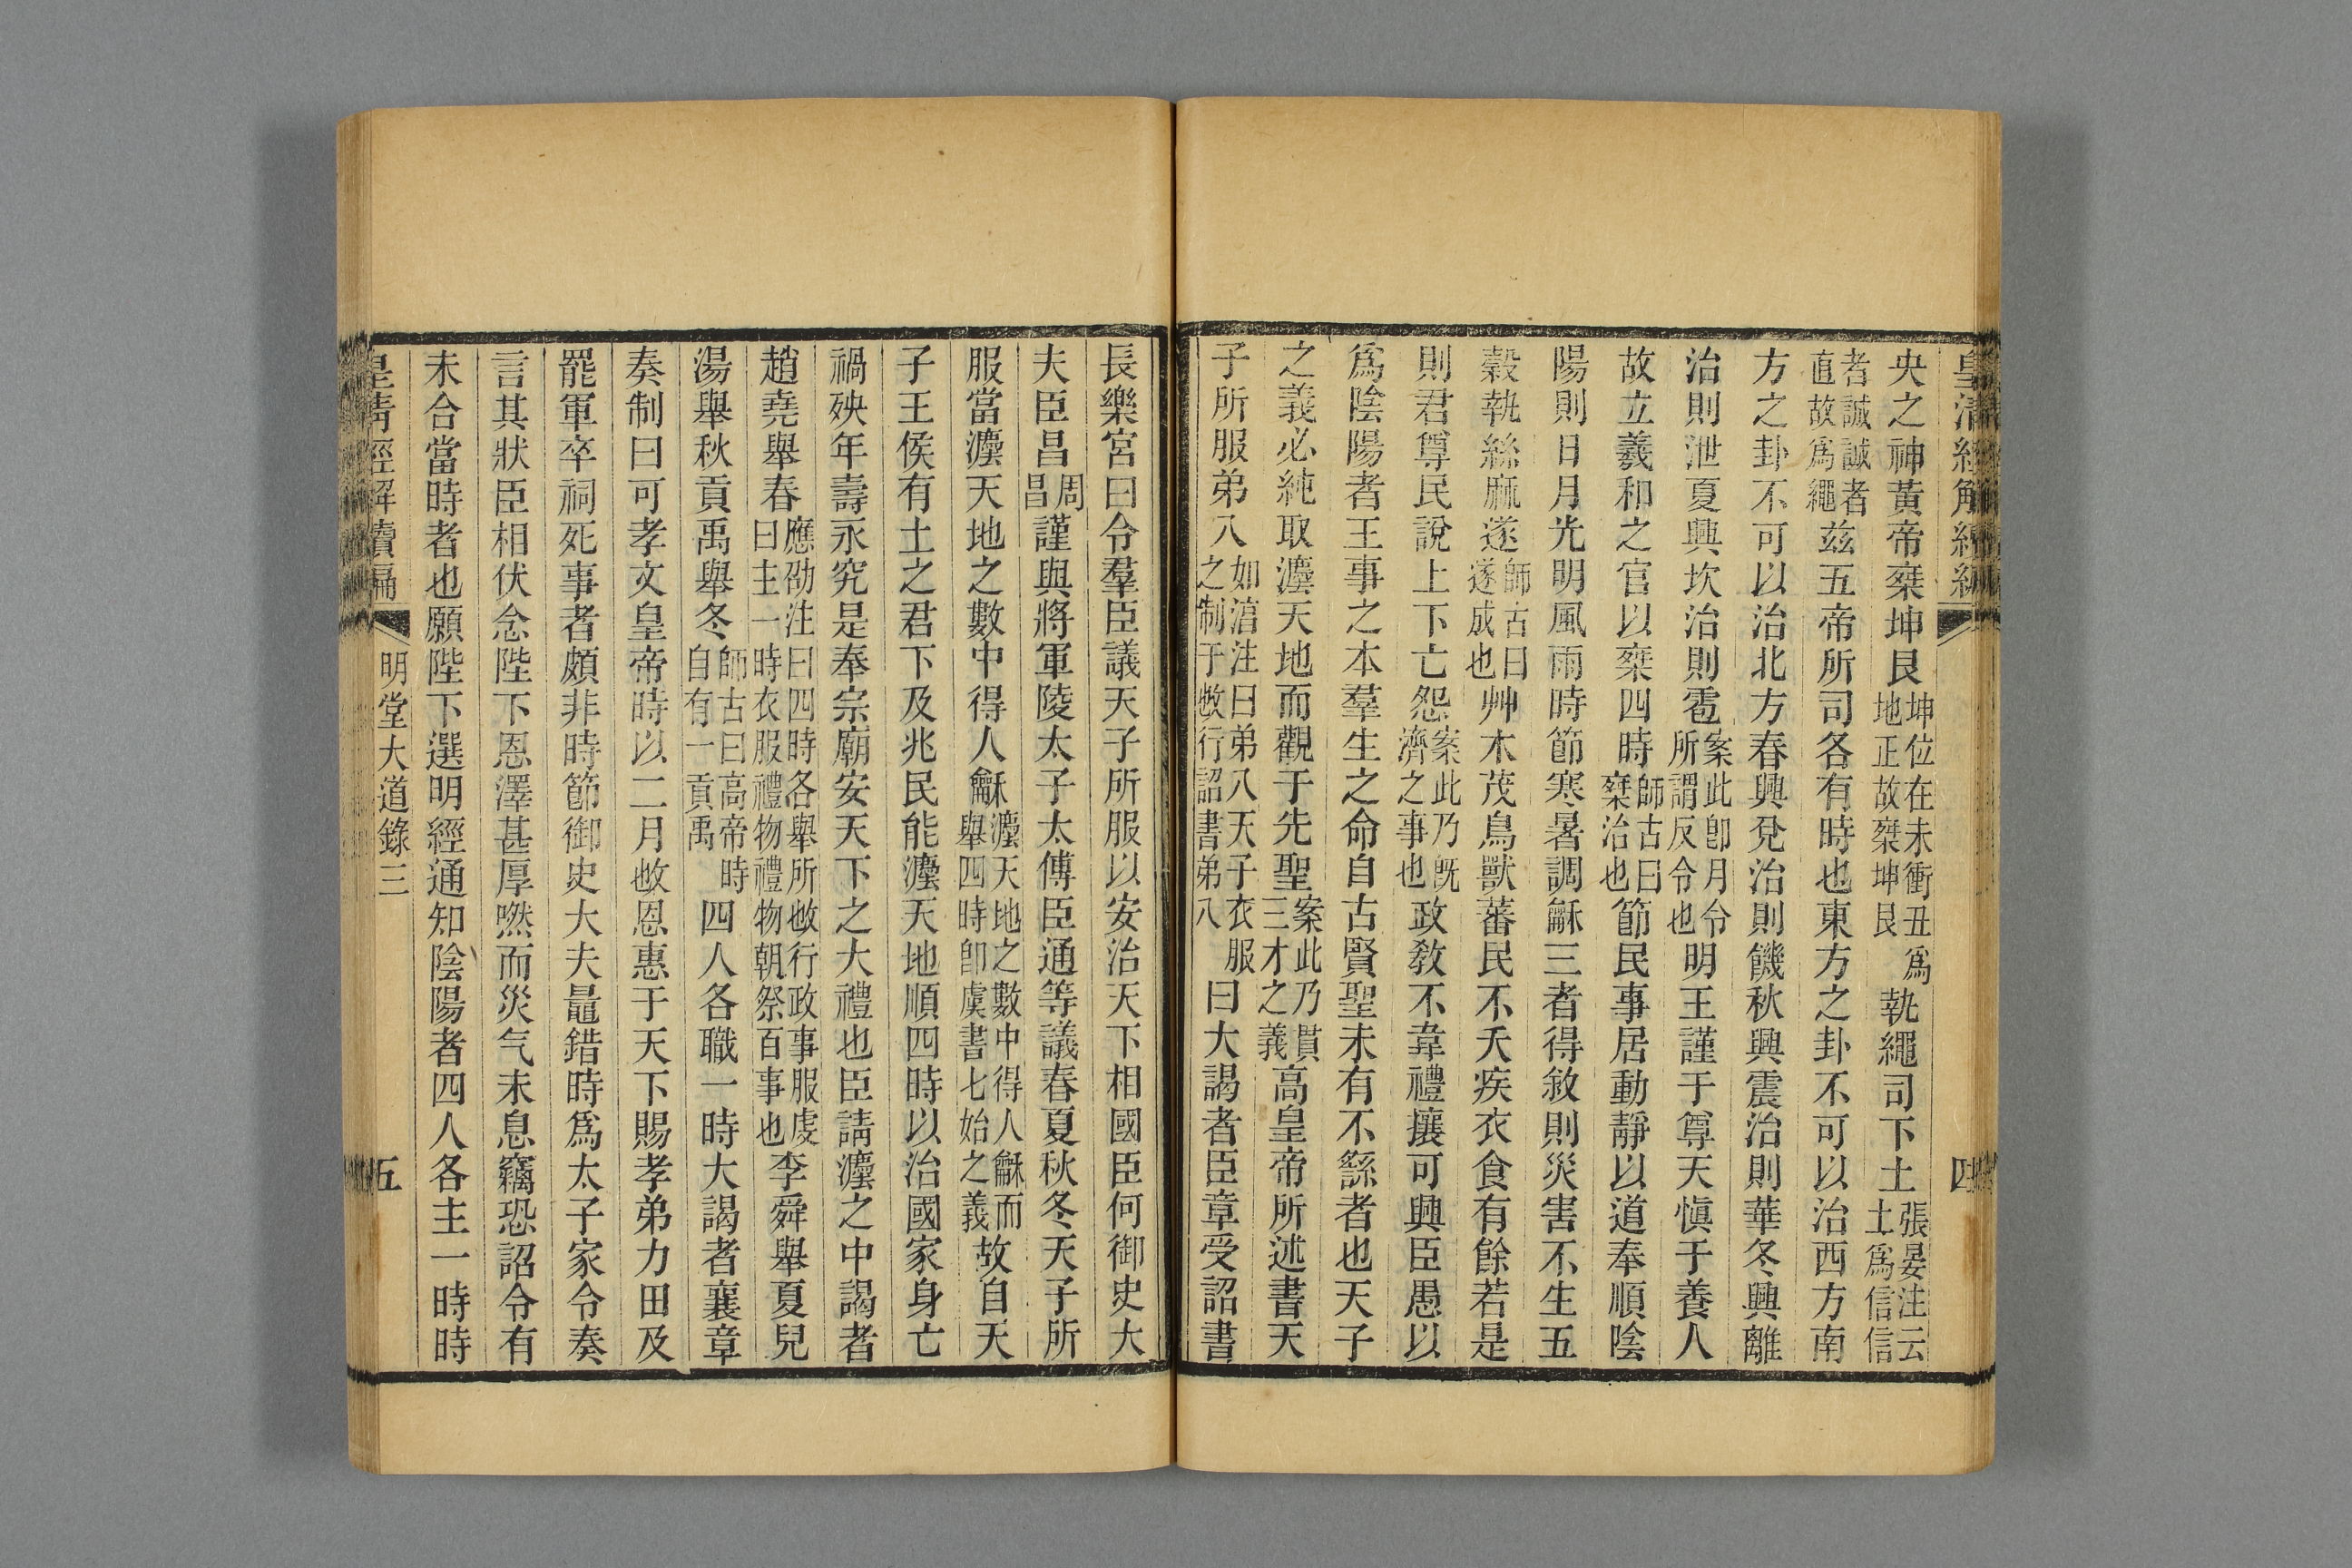 皇清經解續編
四
央之神黃帝椉坤艮坤位在未衝丑爲地正故椉坤艮執繩司下土張晏注云土爲信信
者誠誠者直故爲繩茲五帝所司各有時也東方之卦不可以治西方南
方之卦不可以治北方春興兌治則饑秋興震治則華冬興離
治則泄夏興坎治則雹案此卽月令所謂反令也明王謹于尊天愼于養人
故立羲和之官以椉四時師古曰椉治也節民事居動靜以道奉順陰
陽則日月光明風雨時節寒暑調龢三者得敘則災害不生五
穀執絲麻遂師古曰遂成也艸木茂鳥獸蕃民不夭疾衣食有餘若是
則君尊民說上下亡怨案此乃旣濟之事也政敎不韋禮攘可興臣愚以
爲陰陽者王事之本羣生之命自古賢聖未有不繇者也天子
之義必純取灋天地而觀于先聖案此乃貫三才之義高皇帝所述書天
子所服弟八如淳注曰弟八天子衣服之制于㪅行詔書弟八曰大謁者臣章受詔書
長樂宮曰令羣臣議天子所服以安治天下相國臣何御史大
夫臣昌周昌謹與將軍陵太子太傅臣通等議春夏秋冬天子所
服當灋天地之數中得人龢灋天地之數中得人龢而舉四時卽虞書七始之義故自天
子王侯有土之君下及兆民能灋天地順四時以治國家身亡
禍殃年壽永究是奉宗廟安天下之大禮也臣請灋之中謁者
趙堯舉春應劭注曰四時各舉所㪅行政事服虔曰主一時衣服禮物禮物朝祭百事也李舜舉夏兒
湯舉秋貢禹舉冬師古曰高帝時自有一貢禹四人各職一時大謁者襄章
奏制曰可孝文皇帝時以二月㪅恩惠于天下賜孝弟力田及
罷軍卒祠死事者頗非時節御史大夫鼂錯時爲太子家令奏
言其狀臣相伏念陛下恩澤甚厚然而災气未息竊恐詔令有
未合當時者也願陛下選明經通知陰陽者四人各主一時時
皇清經解續編
明堂大道錄三
五